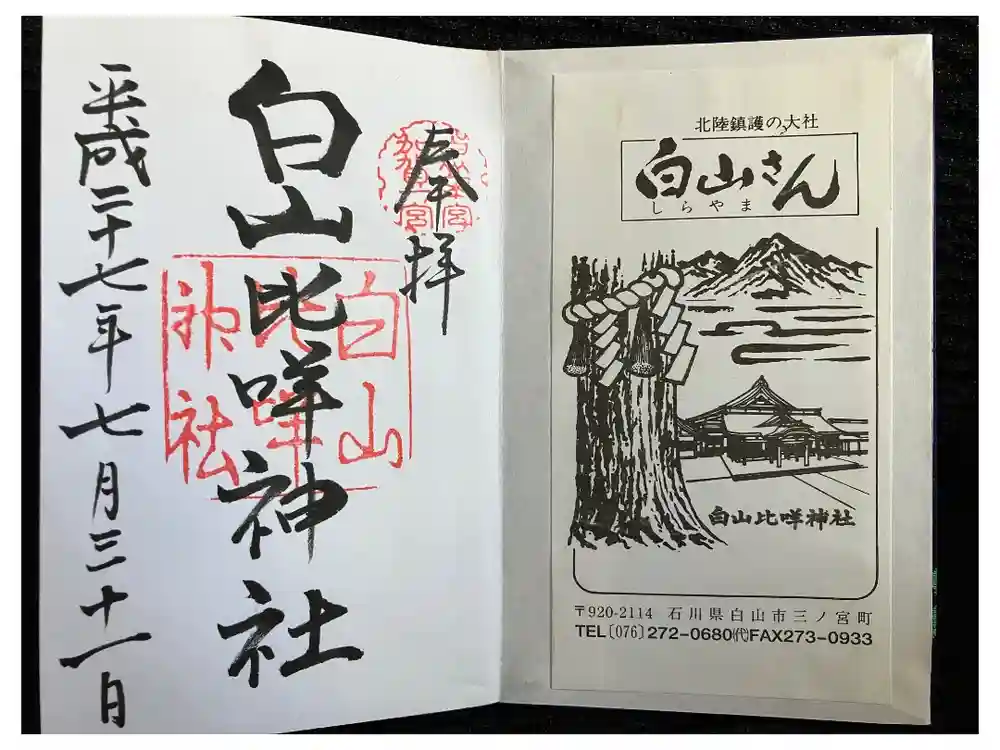 奉拝
白山比咩神社
平成二十七年七月三十一日
加賀一宮
白山
比咩
神社
北陸鎮護の大社
白山さん
しらやま
白山比咩神社
〒920-2114 石川県白山市三ノ宮町
TEL〔076〕272-0680㈹FAX273-0933